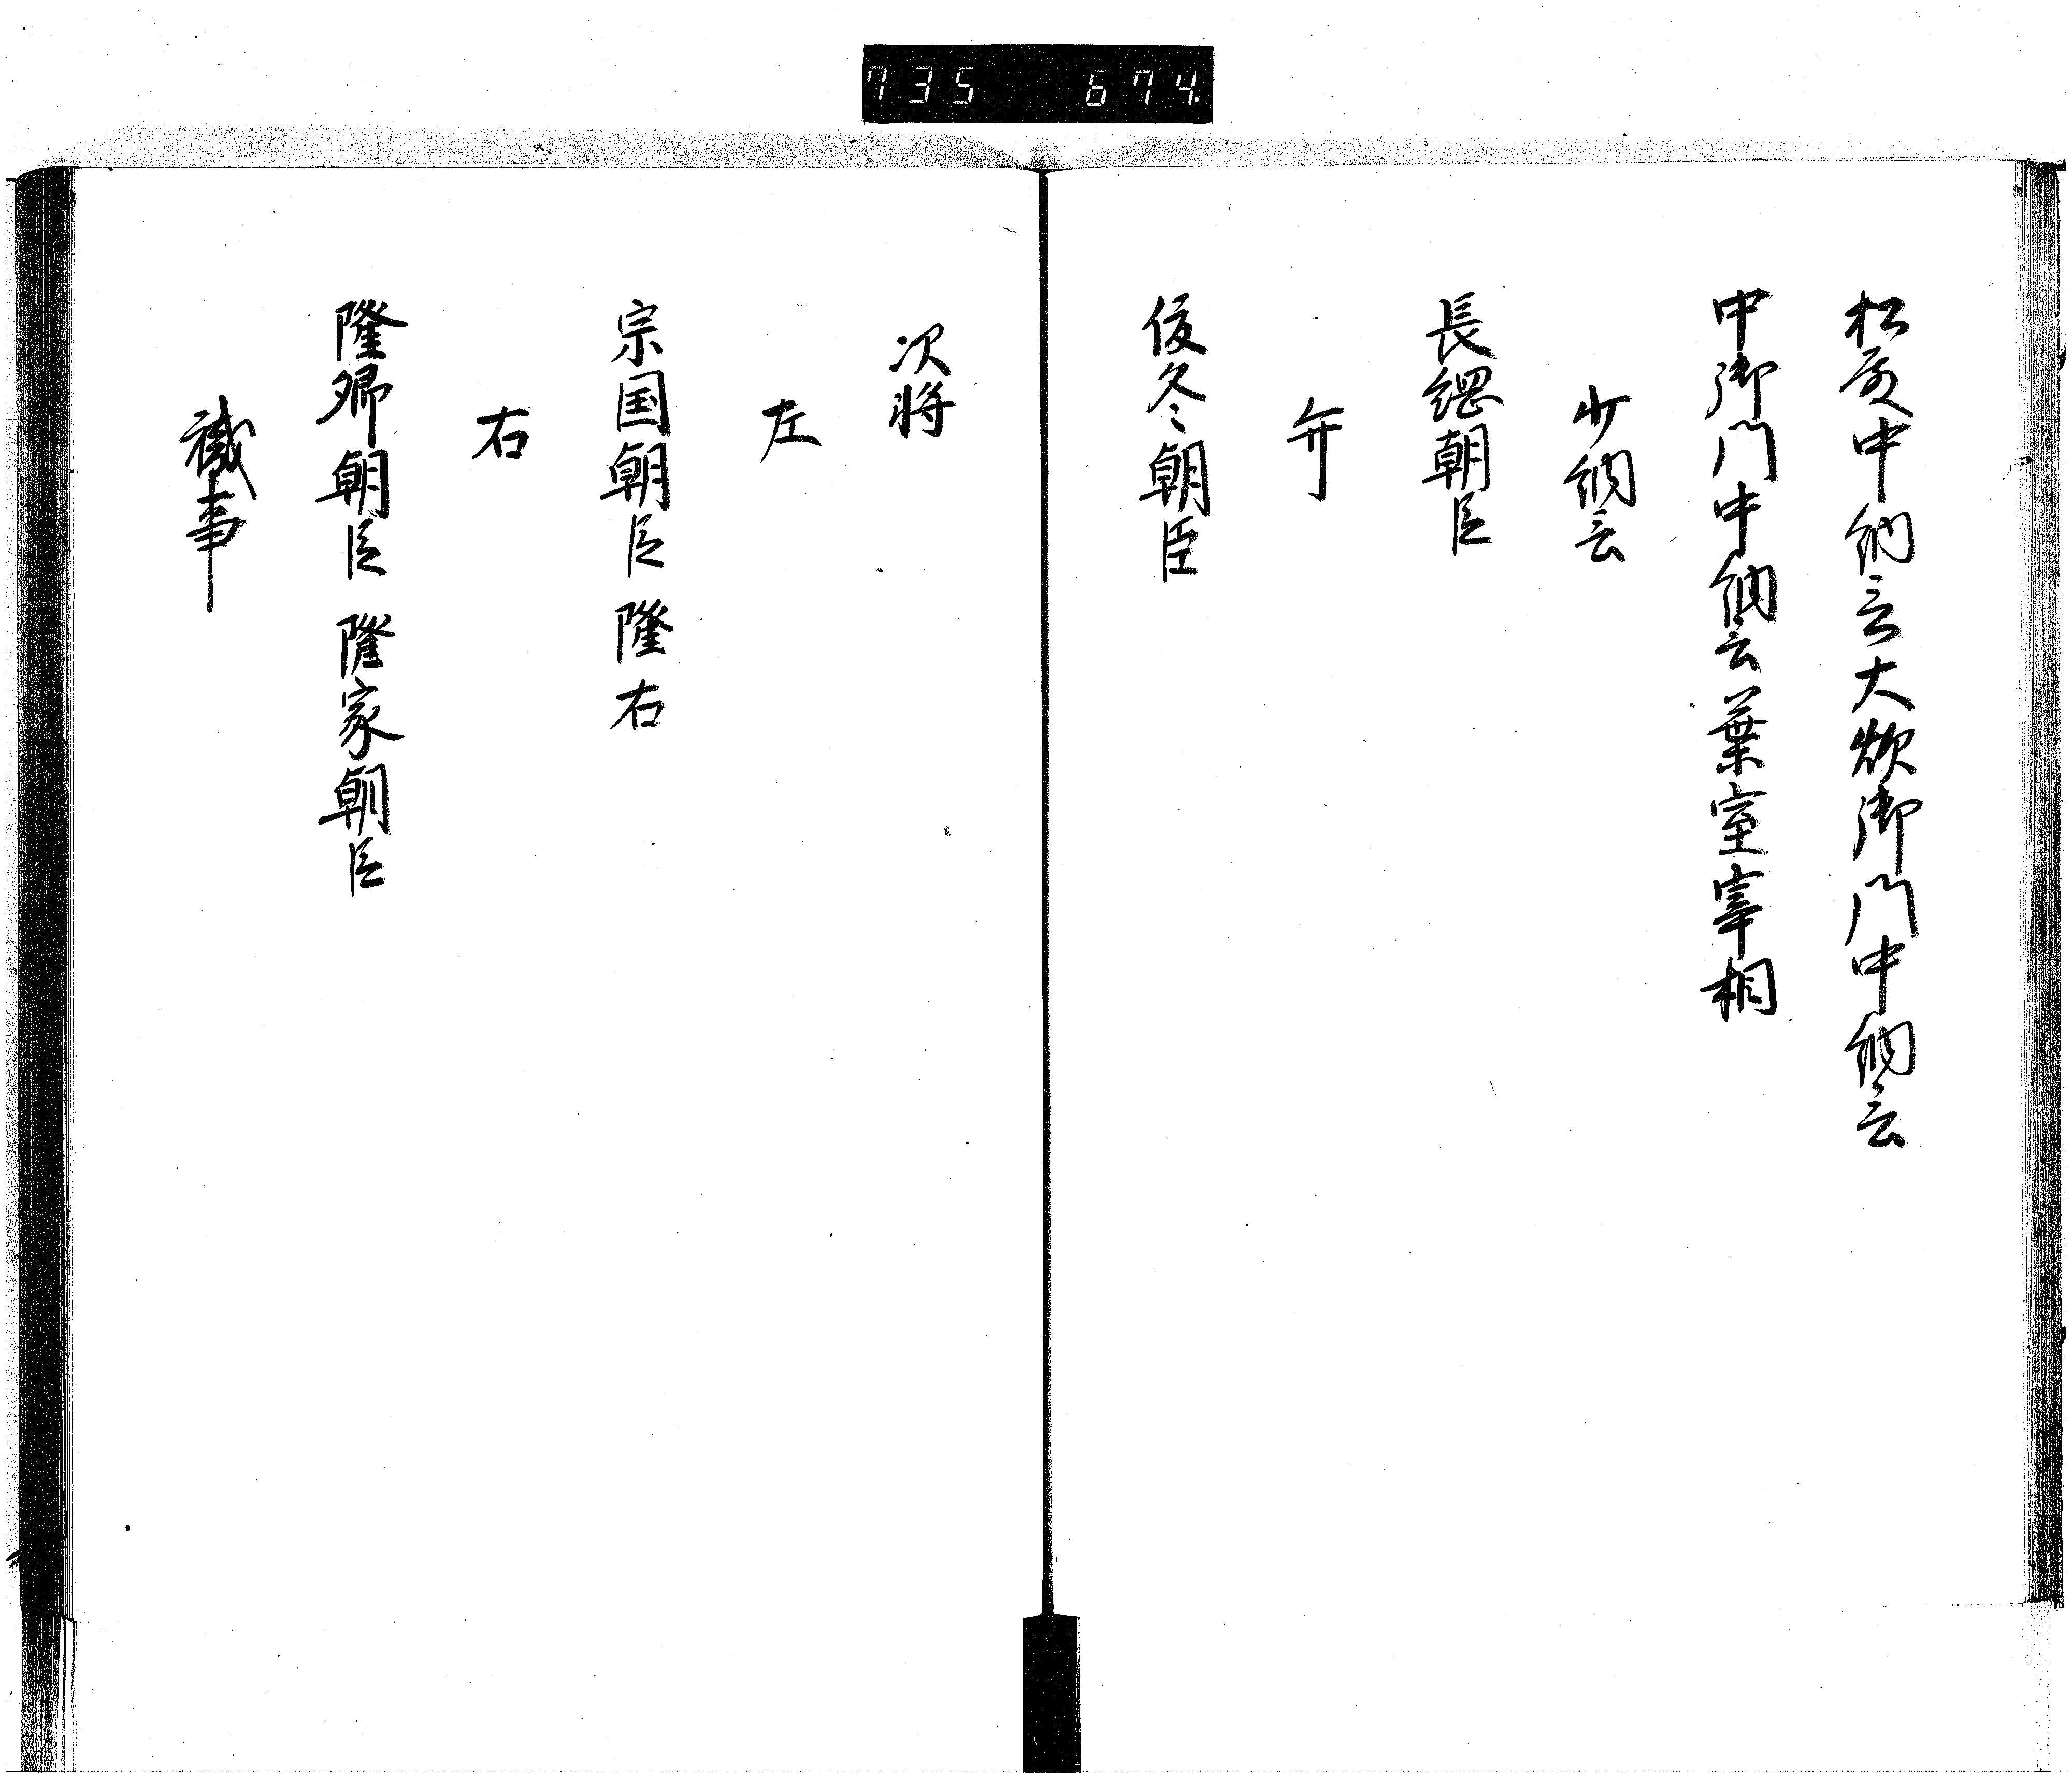 735 674
松殿中納言大炊御門中納言
中御門中納言葉室宰相
少納言
長綱朝臣
弁
俊冬朝臣
次将
左
宗国朝臣 隆右
右
隆郷朝臣 隆家朝臣
職事